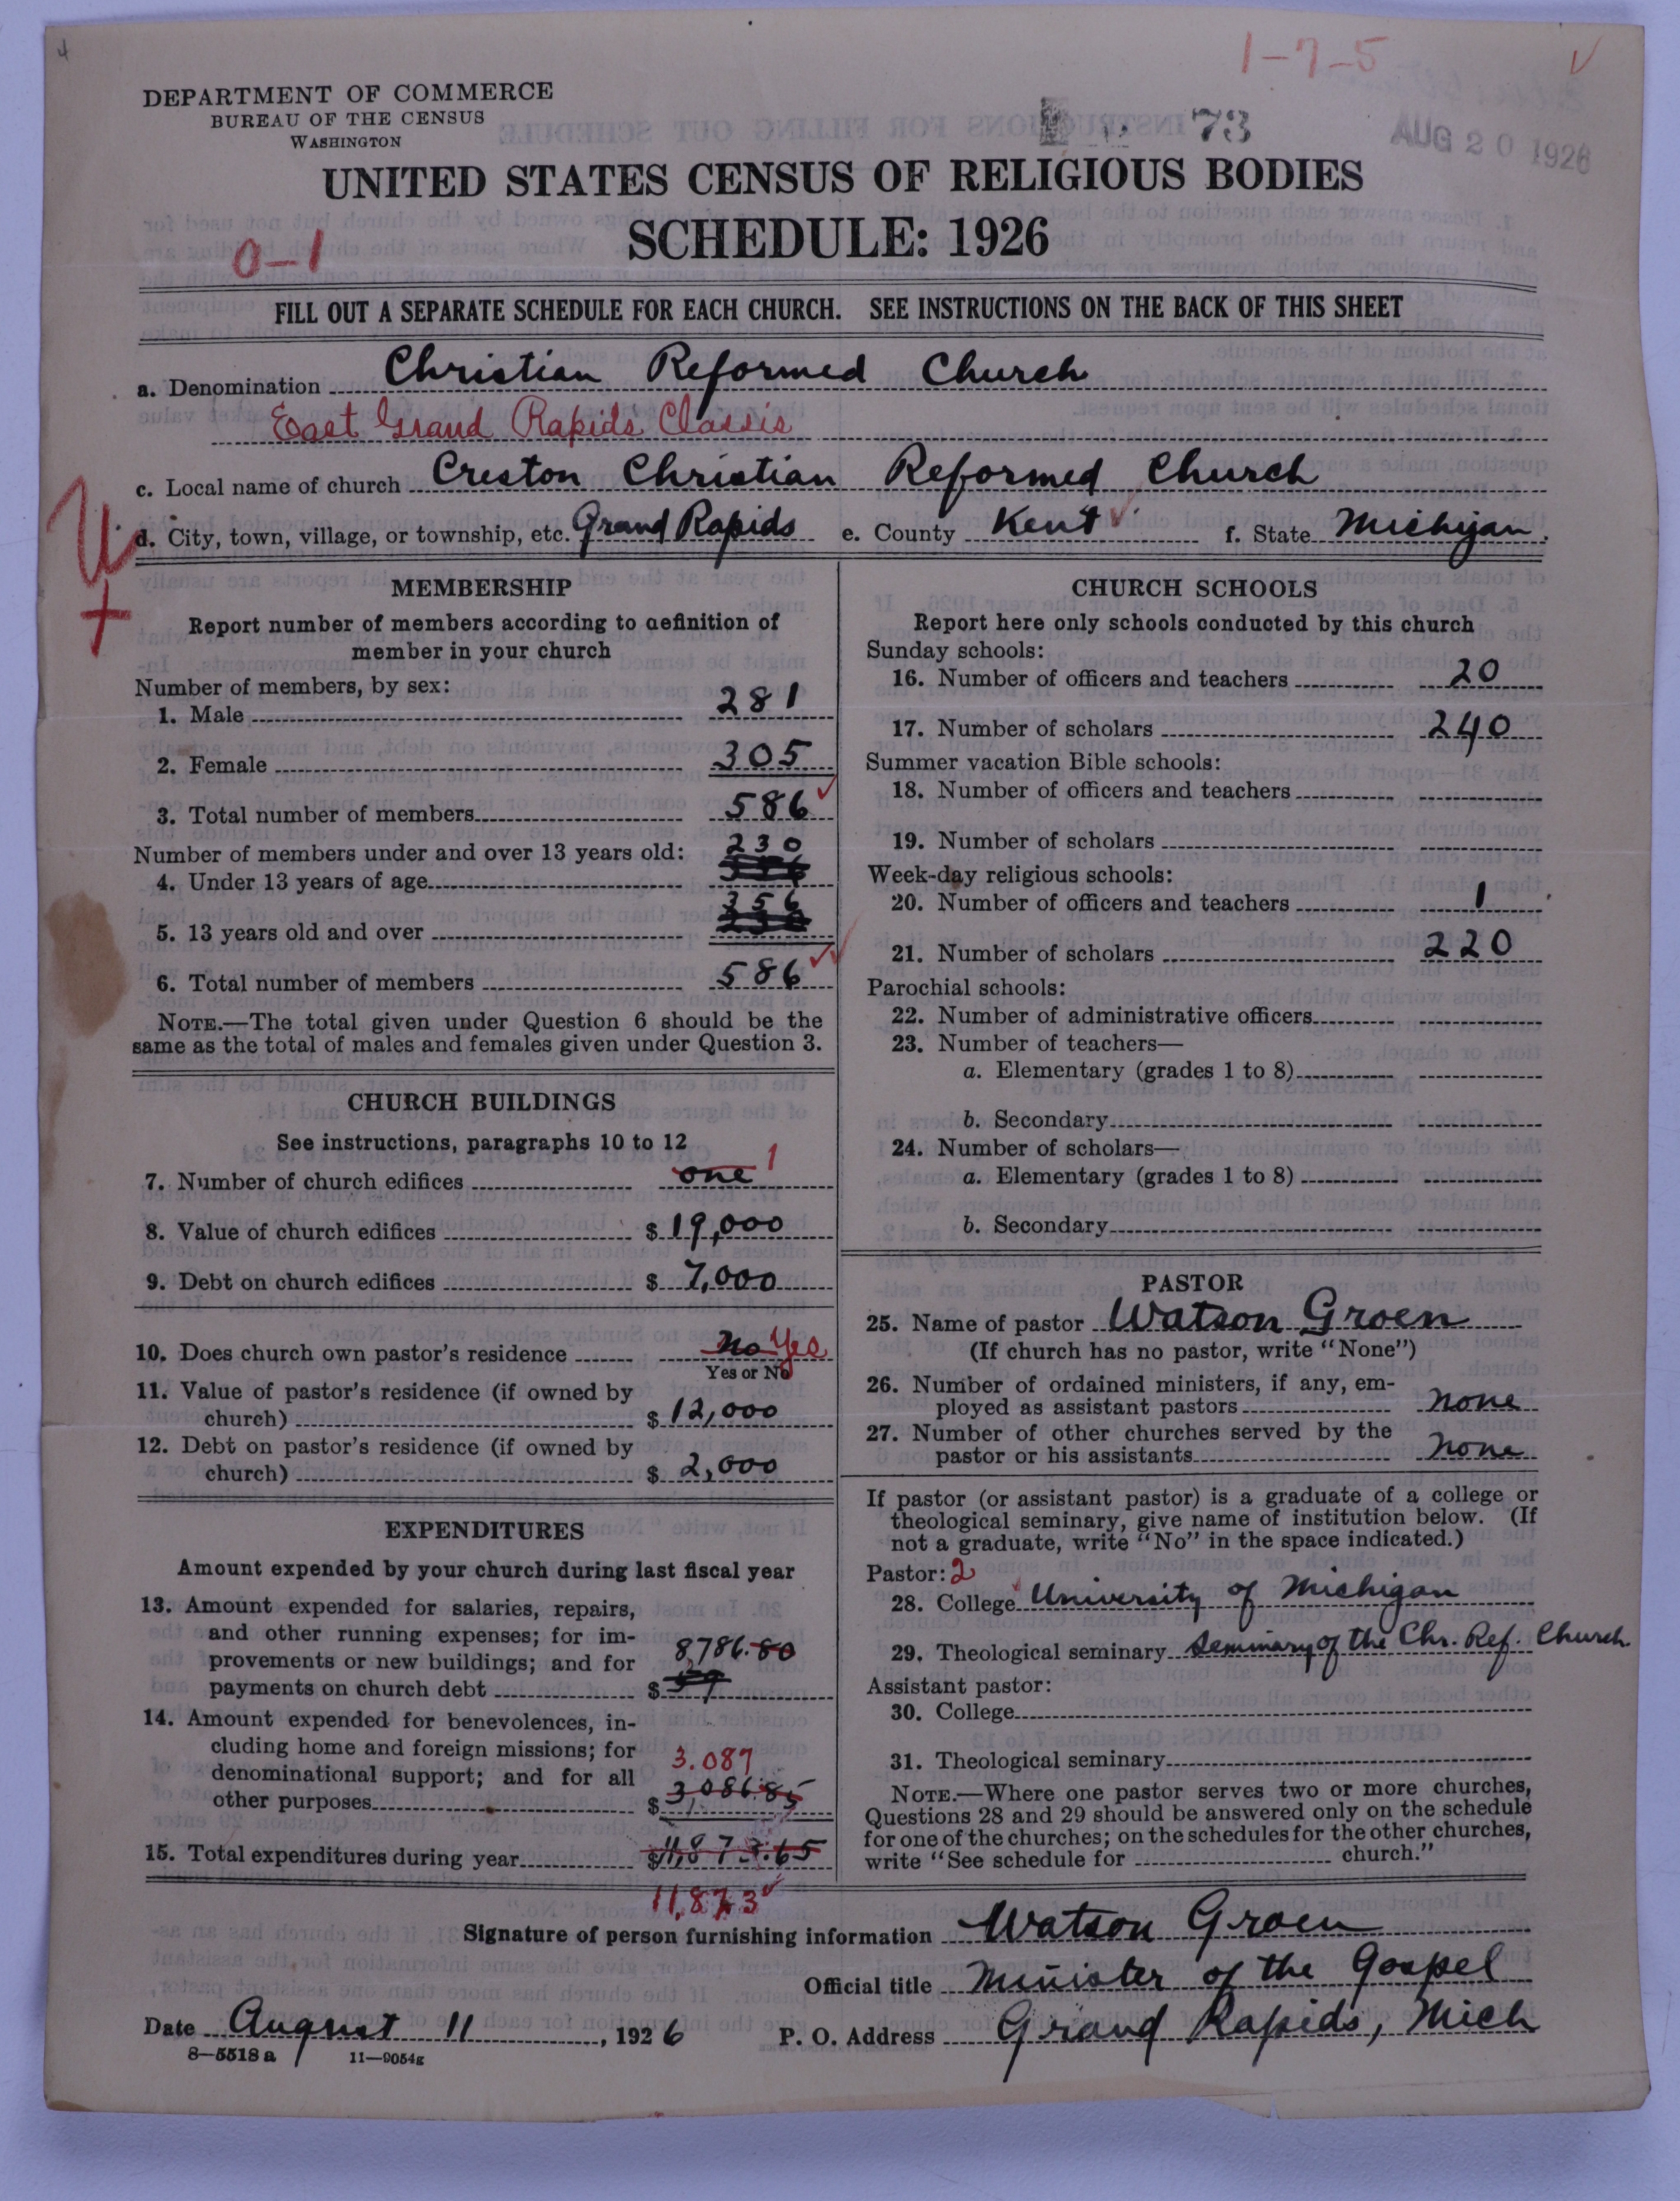 1-7-5
DEPARTMENT OF COMMERCE
BUREAU OF THE CENSUS
WASHINGTON
73
AUG 20 1926
UNITED STATES CENSUS OF RELIGIOUS BODIES
SCHEDULE: 1926
0-1
FILL OUT A SEPARATE SCHEDULE FOR EACH CHURCH. SEE INSTRUCTIONS ON THE BACK OF THIS SHEET
a. Denomination Christian Reformed Church
East Grand Rapids Classis
c. Local name of church Creston Christian Reformed Church
d. City, town, village, or township, etc. Grand Rapids e. County Kent f. State Michigan.
MEMBERSHIP
Report number of members according to definition of
member in your church
Number of members, by sex:
1. Male 281
2. Female 305
3. Total number of members 586
Number of members under and over 13 years old:
4. Under 13 years of age 230
5. 13 years old and over 356
6. Total number of members 586
NOTE.—The total given under Question 6 should be the
same as the total of males and females given under Question 3.
CHURCH BUILDINGS
See instructions, paragraphs 10 to 12
7. Number of church edifices one 1
8. Value of church edifices $ 19,000
9. Debt on church edifices $ 7,000
10. Does church own pastor's residence no Yes
Yes or No
11. Value of pastor's residence (if owned by
church) $ 12,000
12. Debt on pastor's residence (if owned by
church) $ 2,000
EXPENDITURES
Amount expended by your church during last fiscal year
13. Amount expended for salaries, repairs,
and other running expenses; for im-
provements or new buildings; and for 8,786.80
payments on church debt $
14. Amount expended for benevolences, in-
cluding home and foreign missions; for
denominational support; and for all 3.087
other purposes $ 3,086.85
15. Total expenditures during year $11,873.65
11,873
CHURCH SCHOOLS
Report here only schools conducted by this church
Sunday schools:
16. Number of officers and teachers 20
17. Number of scholars 240
Summer vacation Bible schools:
18. Number of officers and teachers
19. Number of scholars
Week-day religious schools:
20. Number of officers and teachers 1
21. Number of scholars 220
Parochial schools:
22. Number of administrative officers
23. Number of teachers—
a. Elementary (grades 1 to 8)
b. Secondary
24. Number of scholars—
a. Elementary (grades 1 to 8)
b. Secondary
PASTOR
25. Name of pastor Watson Groen
(If church has no pastor, write "None")
26. Number of ordained ministers, if any, em-
ployed as assistant pastors none
27. Number of other churches served by the
pastor or his assistants none
If pastor (or assistant pastor) is a graduate of a college or
theological seminary, give name of institution below. (If
not a graduate, write "No" in the space indicated.)
Pastor: 2
28. College University of Michigan
29. Theological seminary Seminary of the Chr. Ref. Church
Assistant pastor:
30. College
31. Theological seminary
NOTE.—Where one pastor serves two or more churches,
Questions 28 and 29 should be answered only on the schedule
for one of the churches; on the schedules for the other churches,
write "See schedule for church."
Signature of person furnishing information Watson Groen
Official title Minister of the Gospel
Date August 11, 1926 P. O. Address Grand Rapids, Mich
8—5518 a 11—9054g